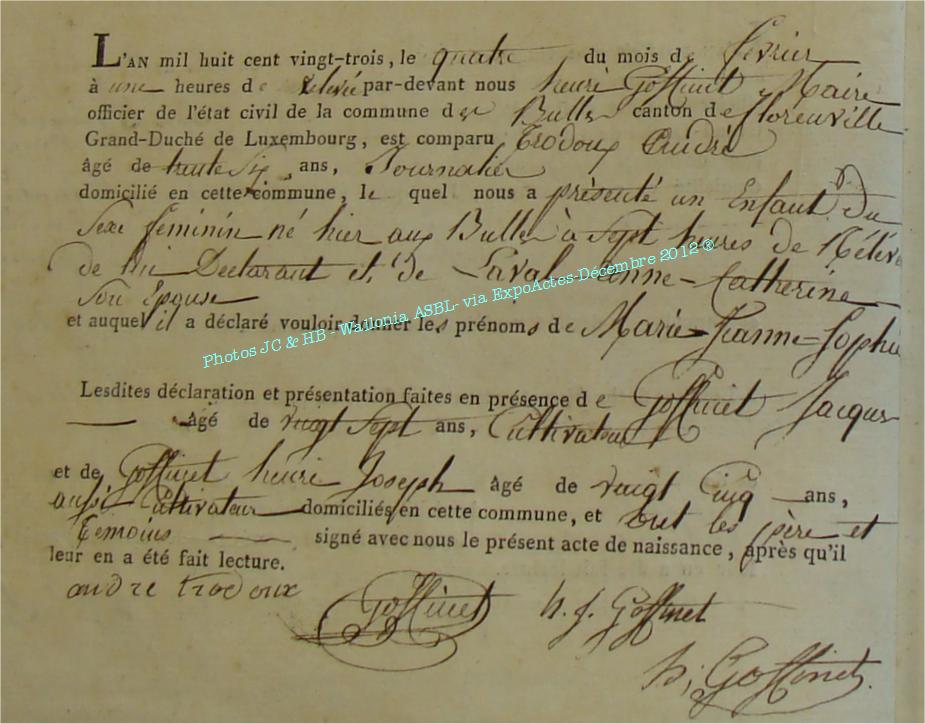 L'AN mil huit cent vingt-trois, le quatre du mois de fevrier
à une heures de relevé par-devant nous henri Goffinet Maire
officier de l'état civil de la commune des Bulles canton de florenville
Grand-Duché de Luxembourg, est comparu Trodoux André
âgé de trente six ans, Journalier
domicilié en cette commune, le quel nous a présenté un Enfant Du
Sexe féminin né hier aux Bulles à Sept heures de Rélévé
de lui Déclarant et de Laval Anne-Catherine
Son Epouse
et auquel il a déclaré vouloir donner les prénoms de Marie-Jeanne-Sophie
Photos JC & HB - Wallonia ASBL- via ExpoActes-Décembre 2012 ®
Lesdites déclaration et présentation faites en présence de Goffinet Jacques
âgé de vingt Sept ans, Cultivateur
et de Goffinet henri Joseph âgé de vingt Cinq ans,
aussi Cultivateur domiciliés en cette commune, et ont les père et
temoins signé avec nous le présent acte de naissance, après qu'il
leur en a été fait lecture.
andre trodoux Goffinet h. j. Goffinet
h, Goffinet.